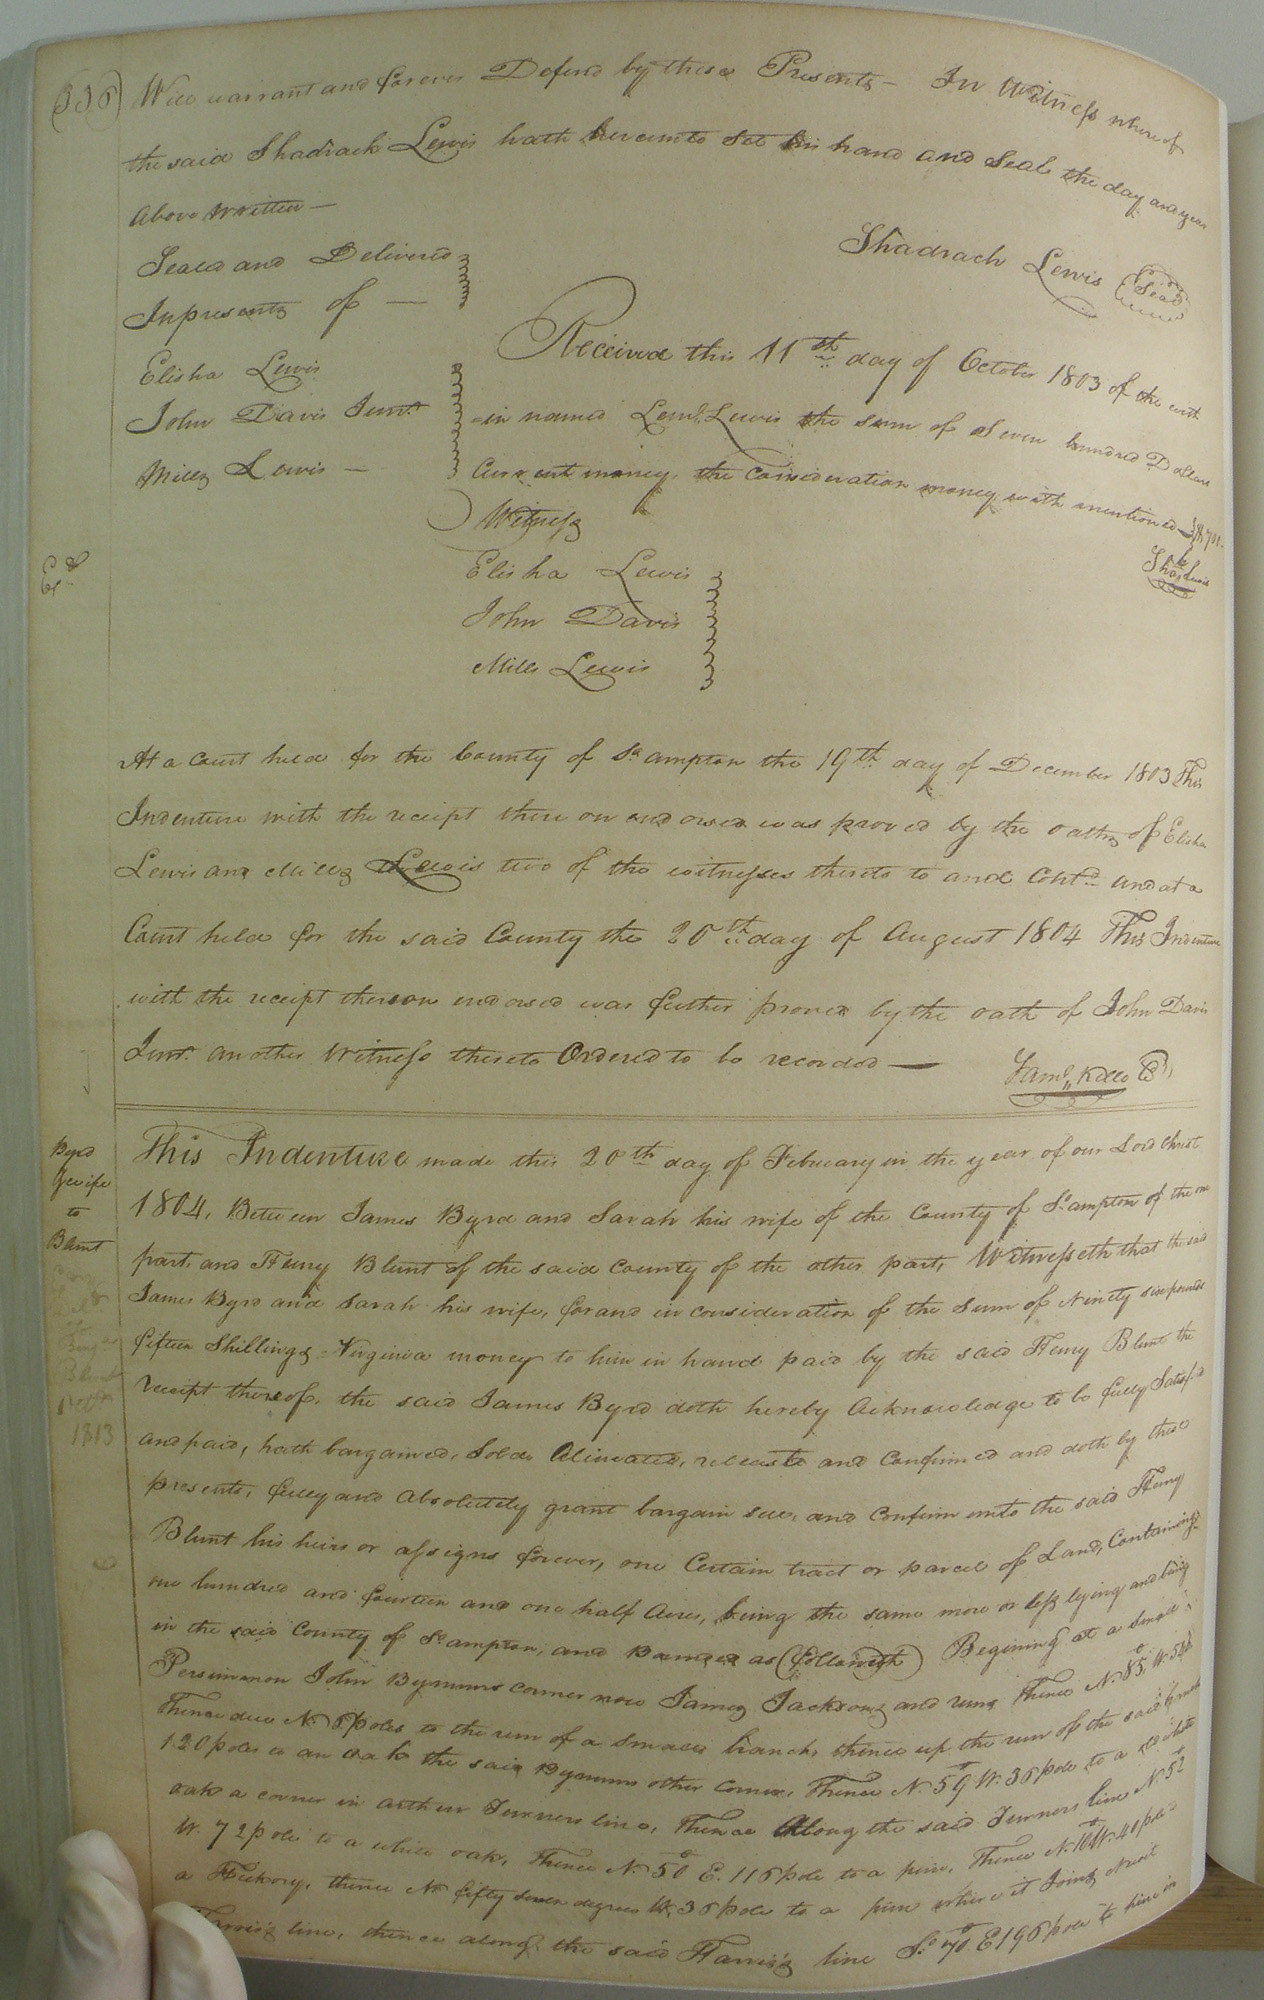 (336) Will warrant and forever Defend by these Presents – In Witness where of
the said Shadrach Lewis hath hereunto Set his hand and Seal the day and year
above written –
Sealed and Delivered
In presents of –
Shadrach Lewis (Seal)
Elisha Lewis
John Davis Junr.
Mills Lewis –
Received this 11th day of October 1803 of the with
=in named Leml. Lewis the sum of Seven hundred Dollars
Current money, the consideration money with mentioned $700–
Witness
Shad. Lewis
Elisha Lewis
John Davis
Mills Lewis
Exd
At a Court held for the County of So. ampton the 19th day of December 1803 This
Indenture with the receipt there on endorsed was proved by the oaths of Elisha
Lewis and Mills Lewis two of the witnesses thereto to and Contd and at a
Court held for the said County the 20th day of August 1804 This Indenture
with the receipt thereon endorsed was further proved by the oath of John Davis
Junr. another Witness thereto Ordered to be recorded —
Saml. Kello CC
Byrd
& wife
to
Blunt
Blunt
1813
This Indenture made this 20th day of February in the year of our Lord Christ
1804, Between James Byrd and Sarah his wife of the County of So. ampton of the one
part, and Henry Blunt of the said County of the other part, Witnesseth that the said
James Byrd and Sarah his wife, for and in consideration of the Sum of Ninety six pounds
fifteen Shillings Virginia money to him in hand paid by the said Henry Blunt the
receipt thereof, the said James Byrd doth hereby Acknowledge to be fully Satisfied
and paid, hath bargained, Sold, Alineated, released and Confirmed and doth by these
presents, fully and absolutely grant bargain sell, and Confirm unto the said Henry
Blunt his heirs or assigns forever, one Certain tract or parcel of Land, Containing
one hundred and fourteen and one half Acres, being the same more or less lying and being
in the said County of So. ampton, and Bounded as (followeth) Begining at a Small
Persimmon John Bynums corner now James Jacksons and runs Thence N. 85° W. 58
Thence due N. 6 poles to the run of a small branch, thence up the run of the said branch
120 poles to an oak the said Bynums other corner, Thence N. 59° W. 36 pole to a white
oak a corner in Arthur Turners line, Thence Along the said Turners line N. 52°
W. 72 pole to a white oak, Thence N. 50° E. 116 pole to a pine, Thence N. 10° W. 40 poles
a Hickory, thence No. fifty seven degrees W. 36 pole to a pine where it Joins
Harris's line, thence along the said Harris's line So. 70° E 196 pole to pine in